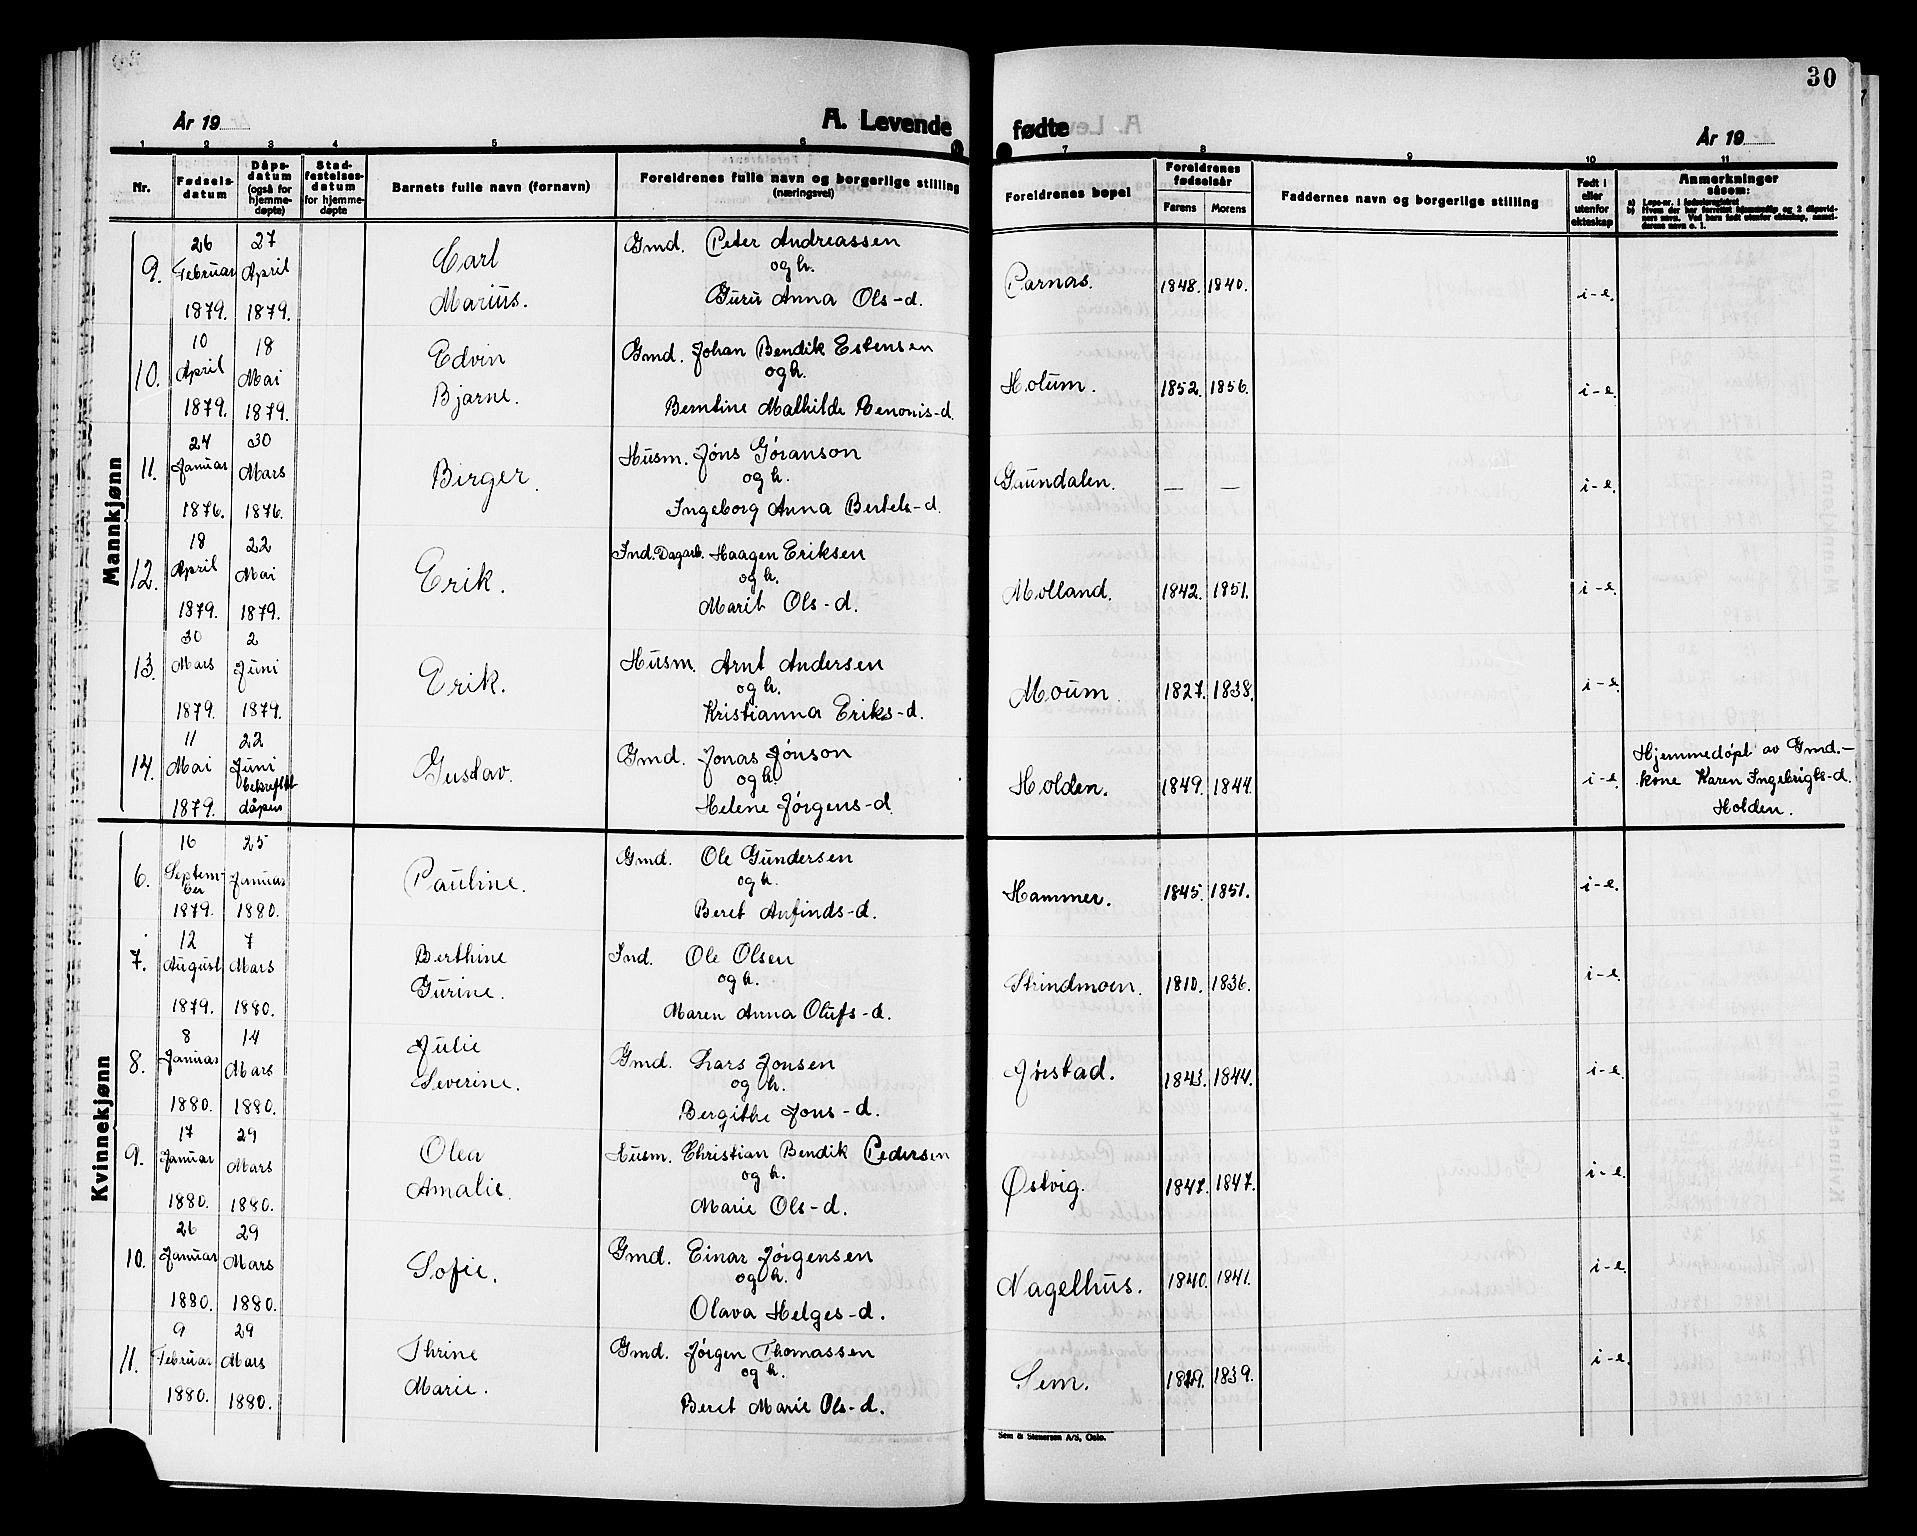 30
År 19
A. Levende
fødte
År 19
1 2 3 4 5 6 7 8 9 10 11
Nr.
Fødsels-
datum
Dåps-
datum
(også for
hjemme-
døpte)
Stad-
festelses-
datum
for hjemme-
døpte
Barnets fulle navn (fornavn)
Foreldrenes fulle navn og borgerlige stilling
(næringsvei)
Foreldrenes bopel
Foreldrenes
fødselsår
Farens Morens
Faddernes navn og borgerlige stilling
Født i
eller
utenfor
ekteskap
Anmerkninger
såsom:
a) Løpe-nr. i fødselsregistret
Mannkjønn
9. 26 Februar 1879. 27 April 1879. Carl Marius. Gmd. Peter Andreassen og h. Guru Anna Ols-d. Parnas. 1848. 1840. i-e.
10. 10 April 1879. 18 Mai 1879. Edvin Bjarne. Gmd. Johan Bendik Estensen og h. Berntine Mathilde Benonis-d. Holum. 1852. 1856. i-e.
11. 24 Januar 1876. 30 Mars 1876. Birger. Husm. Jøns Gøranson og h. Ingeborg Anna Bertels-d. Grundalen. — — i-e.
12. 18 April 1879. 22 Mai 1879. Erik. Ind. Dagarb. Haagen Eriksen og h. Marit Ols-d. Molland. 1842. 1851. i-e.
13. 30 Mars 1879. 2 Juni 1879. Erik. Husm. Arnt Andersen og h. Kristianna Eriks-d. Moum. 1827. 1838. i-e.
14. 11 Mai 1879. 22 Juni bekreftet dåpen Gustav. Gmd. Jonas Jónson og h. Helene Jørgens-d. Holden. 1849. 1844. i-e. Hjemmedøpt av Gmd.-
kone Karen Ingebrigts-d.
Holden.
Kvinnekjønn
6. 16 Septem-ber 1879. 25 Januar 1880. Pauline. Gmd. Ole Gundersen og h. Beret Anfinds-d. Hammer. 1845. 1851. i-e.
7. 12 August 1879. 7 Mars 1880. Berthine Gurine. Ind. Ole Olsen og h. Maren Anna Olufs-d. Strindmoen. 1810. 1836. i-e.
8. 8 Januar 1880. 14 Mars 1880. Julie Severine. Gmd. Lars Jonsen og h. Bergithe Jons-d. Jørstad. 1843. 1844. i-e.
9. 17 Januar 1880. 29 Mars 1880. Olea Amalie. Husm. Christian Bendik Pedersen og h. Marie Ols-d. Østvig. 1847. 1847. i-e.
10. 26 Januar 1880. 29 Mars 1880. Sofie. Gmd. Einar Jørgensen og h. Olava Helges-d. Nagelhus. 1840. 1841. i-e.
11. 9 Februar 1880. 29 Mars 1880. Thrine Marie. Gmd. Jørgen Thomassen og h. Beret Marie Ols-d. Sem. 1839. i-e.
Sem & Stenersen A/S, Oslo.